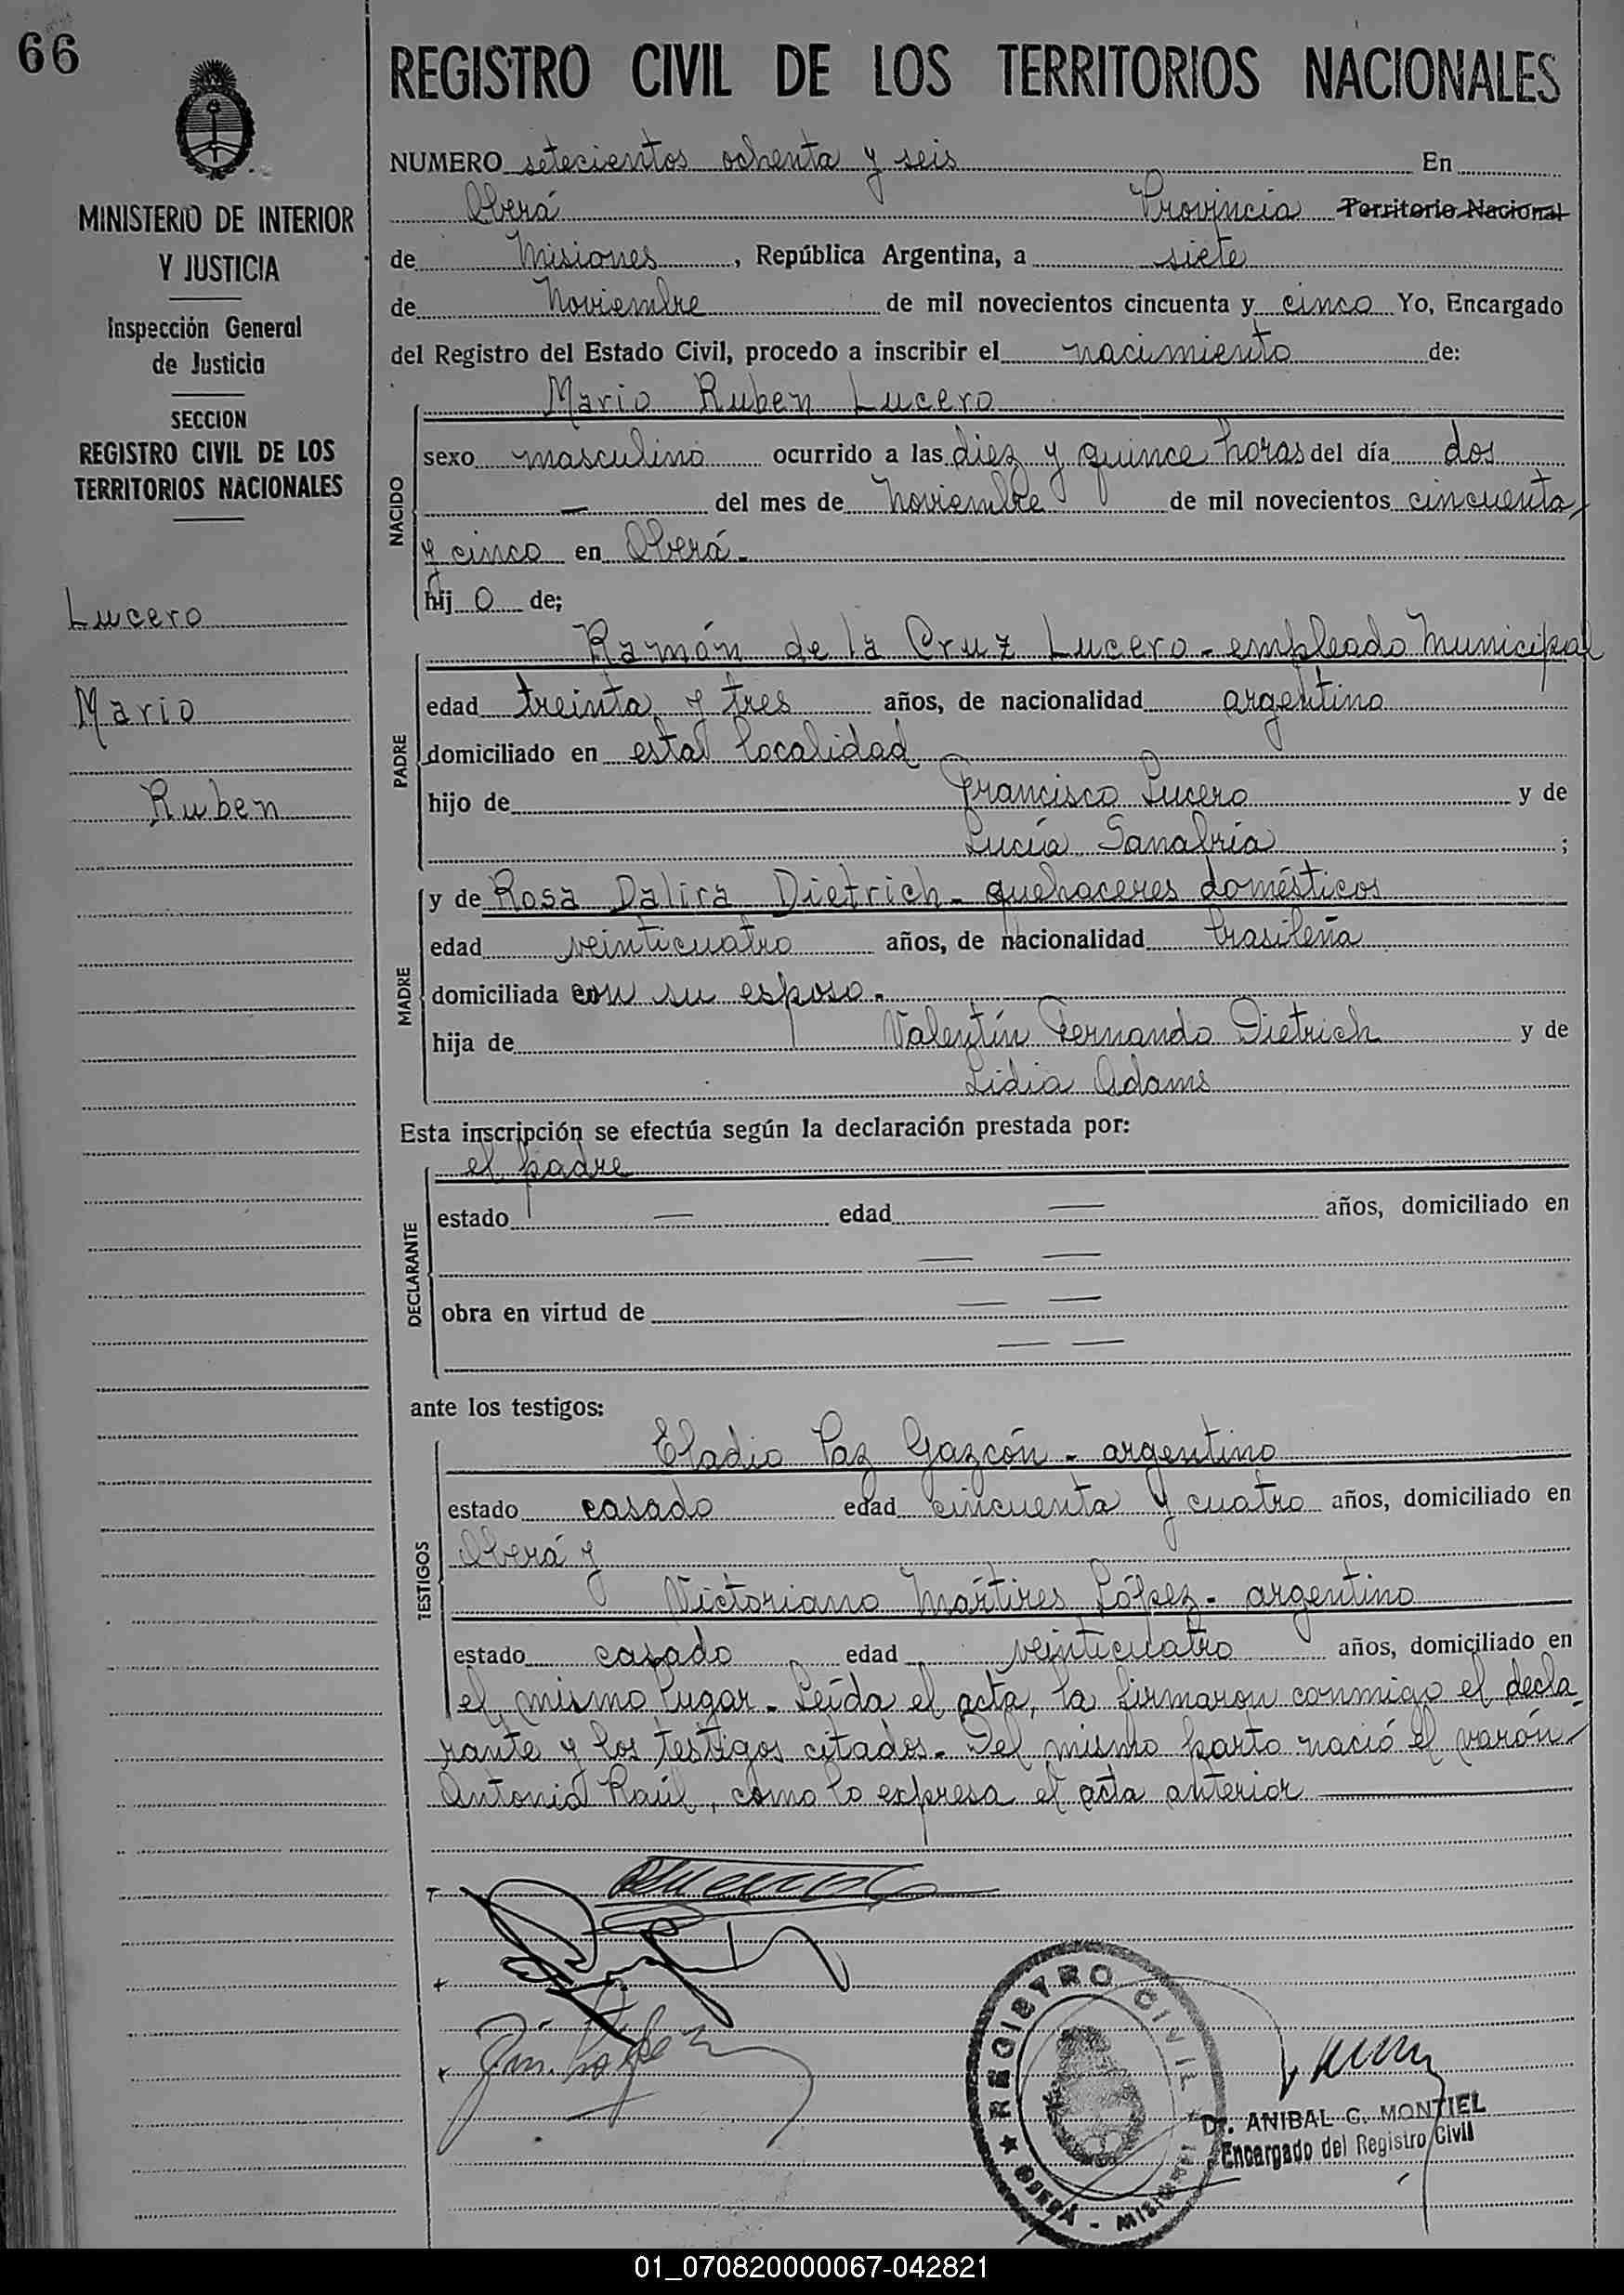 66
REGISTRO CIVIL DE LOS TERRITORIOS NACIONALES
MINISTERIO DE INTERIOR
Y JUSTICIA
Inspección General
de Justicia
SECCION
REGISTRO CIVIL DE LOS
TERRITORIOS NACIONALES
Lucero
Mario
Ruben
NUMERO setecientos ochenta y seis En
Oberá Provincia Territorio Nacional
de Misiones, República Argentina, a siete
de Noviembre de mil novecientos cincuenta y cinco Yo, Encargado
del Registro del Estado Civil, procedo a inscribir el nacimiento de:
NACIDO
Mario Ruben Lucero
sexo masculino ocurrido a las diez y quince horas del día dos
— del mes de Noviembre de mil novecientos cincuenta
y cinco en Oberá -
hij o de;
PADRE
Ramón de la Cruz Lucero - empleado Municipal
edad treinta y tres años, de nacionalidad argentino
domiciliado en esta localidad
hijo de Francisco Lucero y de
Lucía Sanabria ;
MADRE
y de Rosa Dalira Dietrich - quehaceres domésticos
edad veinticuatro años, de nacionalidad brasileña
domiciliada con su esposo.
hija de Valentín Fernando Dietrich y de
Lidia Adams
Esta inscripción se efectúa según la declaración prestada por:
DECLARANTE
el padre
estado — edad — años, domiciliado en
— —
obra en virtud de — —
— —
ante los testigos:
TESTIGOS
Eladio Paz Gazcón - argentino
estado casado edad cincuenta y cuatro años, domiciliado en
Oberá y
Victoriano Mártires López - argentino
estado casado edad veinticuatro años, domiciliado en
el mismo lugar - Leída el acta, la firmaron conmigo el decla-
rante y los testigos citados - Del mismo parto nació el varón
Antonio Raúl, como lo expresa el acta anterior
REGISTRO CIVIL
★ OBERÁ - MISIONES ★
Dr. ANIBAL C. MONTIEL
Encargado del Registro Civil
01_070820000067-042821